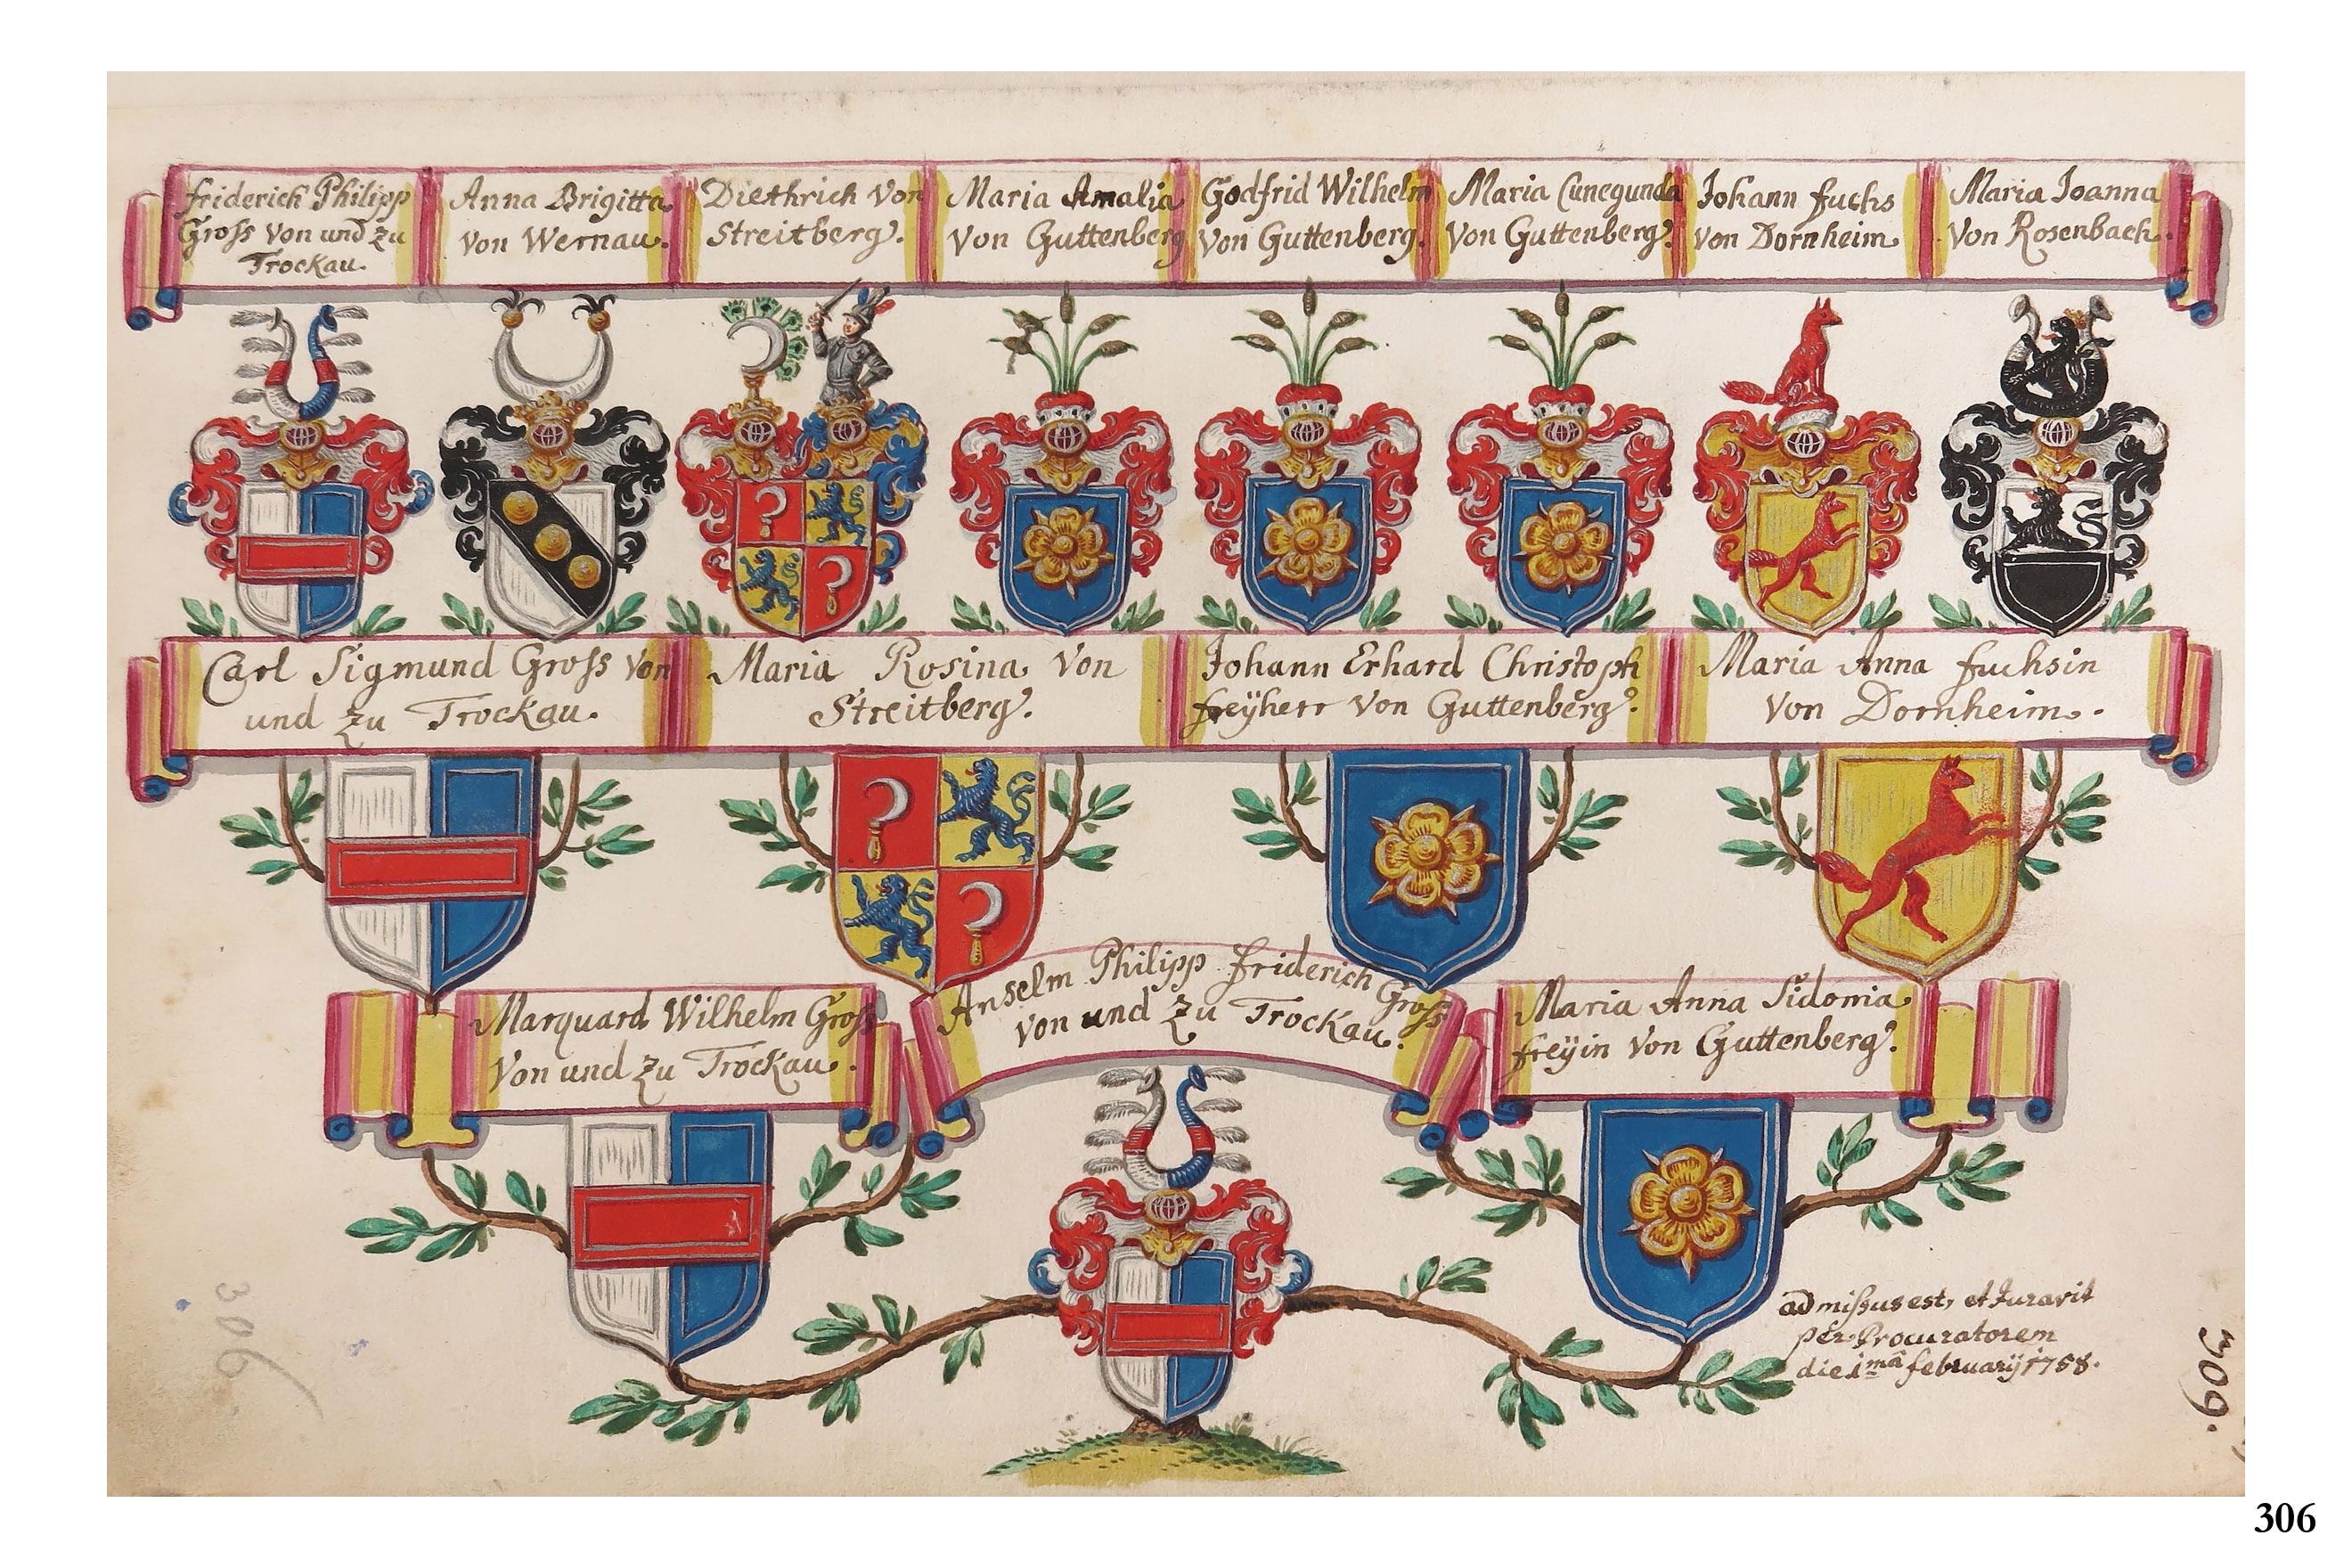 friderich Philipp
Gross von und zu
Trockau.
Anna Brigitta
von Wernau.
Diethrich von
Streitberg.
Maria Amalia
von Guttenberg
Godfrid Wilhelm
von Guttenberg.
Maria Cunegunda
von Guttenberg.
Johann fuchs
von Dornheim
Maria Joanna
von Rosenbach.
Carl Sigmund Gross von
und zu Trockau.
Maria Rosina von
Streitberg.
Johann Erhard Christoph
freÿherr von Guttenberg.
Maria Anna fuchsin
von Dornheim.
Marquard Wilhelm Gross
von und zu Trockau.
Anselm Philipp friderich Gross
von und zu Trockau.
Maria Anna Sidonia
freÿin von Guttenberg.
admissus est, et Juravit
per Procuratorem
die 1mâ februarÿ 1758.
306
309.
306